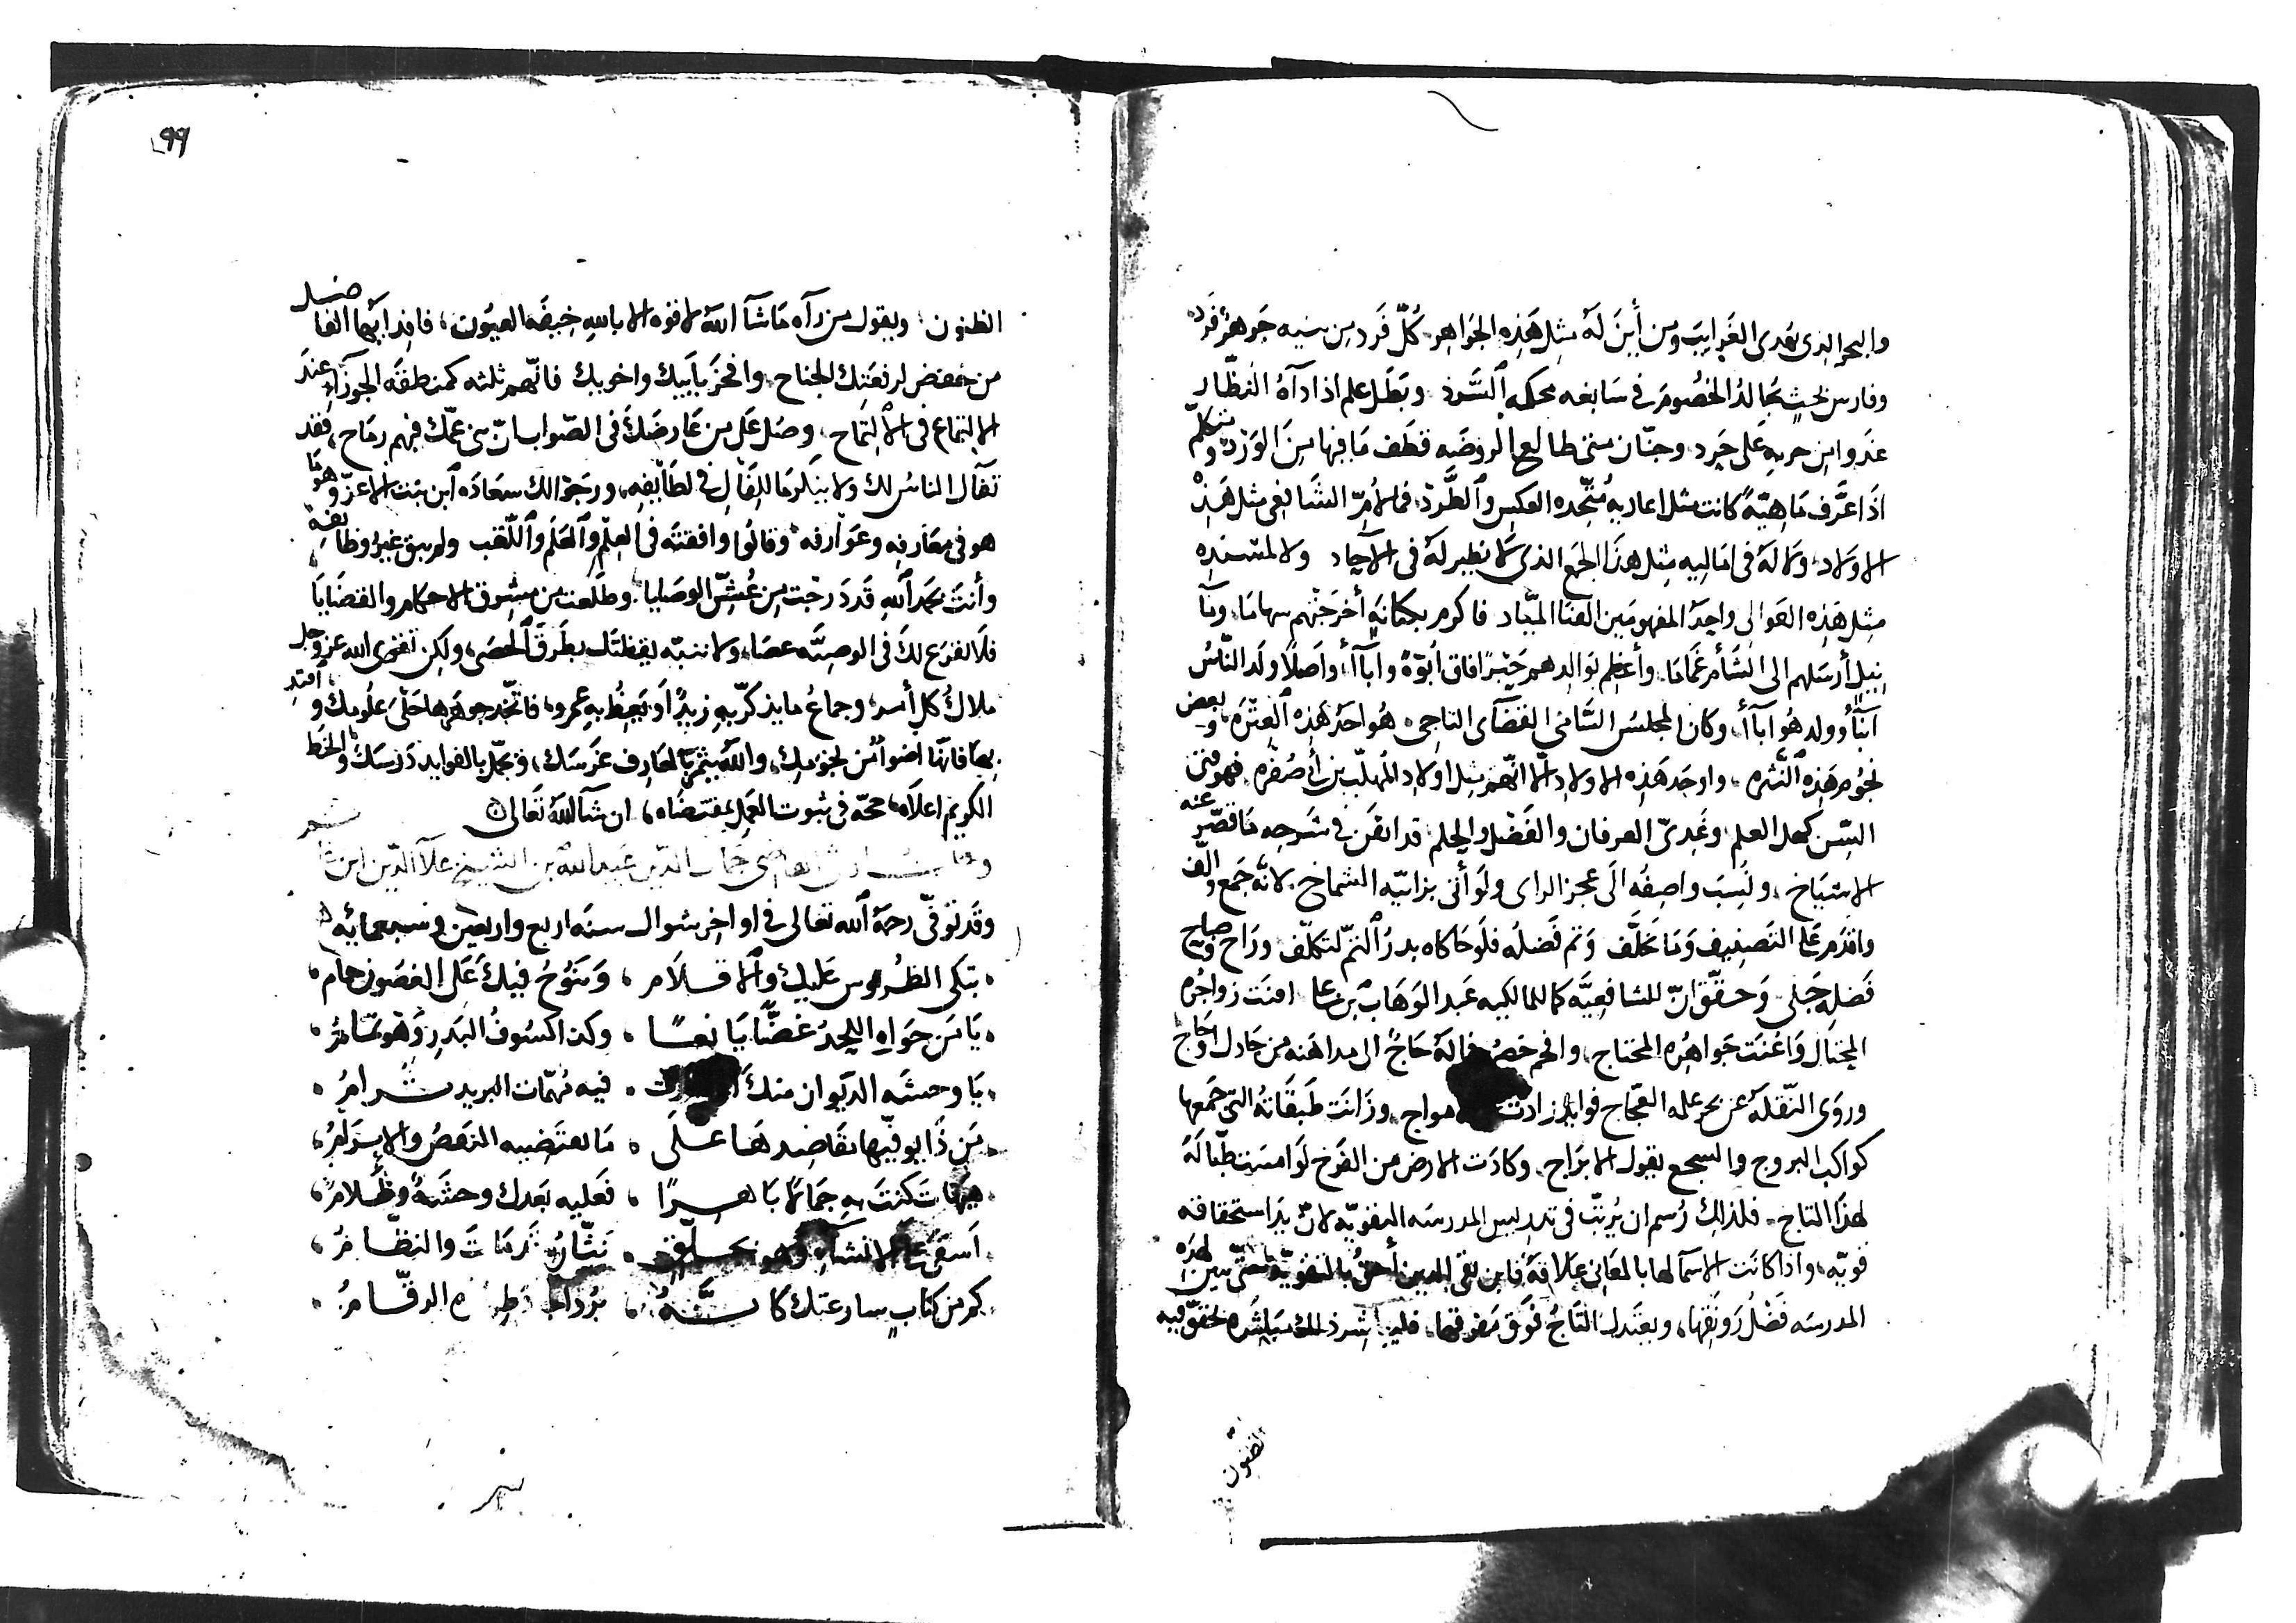 والبحر الذى يهدى الغرايب ومن أين له مثل هذه الجواهر كلّ فرد من بنيه جوهر فرد
وفارس بحث يجالد الخصوم فى سابغه محكمه السّرد وبطل علم اذا رآه النظّار
غدوا من حربه على حرد وجنان متى طالع الروضه قطف ما فيها من الورد ومتكلّم
اذا عرّف ماهيّة كانت مثل اعاديه متّحده العكس والطّرد فما لأمّ الشافعى مثل هذه
الاولاد ولا له فى اماليه مثل هذا الجمع الذى لا نظير له فى الآحاد ولا لمسنده
مثل هذه العوالى واحد المفهومين القنا الميّاد فاكرم بكنانه أخرجتهم سهاما ويا
نيل أرسلهم الى الشأم غماما وأعظم بوالدهم حبرا فاق أبوّة وابآأ واصلا ولد النّاس
ابنآأ وولد هو ابآأ وكان المجلس السّامى القضآى التاجى هو احد هذه العتره وبعض
نجوم هذه النثره واوحد هذه الاولاد الا انّهم مثل اولاد المهلّب بن أبى صفره فهو فتى
السّن كهل العلم وغدىّ العرفان والفضل والحلم قد اتقن فى شرحه ما قصّر عنه
الاشياخ ونسب واصفه الى عجز الراى ولو أتى بزائيّه الشماخ لانّه جمع وألّف
واقدم على التصنيف وما تخلّف وتم فضله فلو حاكاه بدر التمّ لتكلّف وراح وصباح
فضله جلى وحقّق انّ للشافعيّه كما للمالكيه عبد الوهاب بن على امنت زواجره
المحتال واغنت جواهره المحتاج وافحم خصمه فما له حاج الى مداهنه من جادل او حاج
وروى النّقله عن بحر علمه العجّاج فوايد زادت مواج وزانت طبقاته التى جمعها
كواكب البروج والسجع يقول الابراج وكادت الارض من الفرح لو امست طبّا له
لهذا التاج فلذلك رسم ان يرتّب فى تدريس المدرسه التقويّه لانّ يد استحقاقه
قويّه واذا كانت الاسمآ لها بالمعانى علاقه فابن تقى الدين أحقّ بالتقويّة حتّى يبين لهذه
المدرسه فضل رونقها ويعتدل التاج فوق مفرقها فليباشر ذلك مباشره تحقق فيه
الظنون
٩٩
الظنون ويقول من رآه ما شآ الله لا قوه الا بالله خيفه العيون فافد ايها الفاضل
من خفض لرفعتك الجناح وافخر بأبيك واخويك فانّهم ثلثه كمنطقه الجوزآ عند
الالتماع فى الالتماح وصل على من عارضك فى الصّواب انّ بنى عمّك فيهم رماح فقد
تفآل الناس لك ولا ينكر ما للفال فى لطايفه ورجوا لك سعاده ابن بنت الاعزّ وها
هو فى معارفه وعوارفه وقالوا وافقته فى العلم والعلم واللّقب ولم يبق غير وظايفه
وأنت بحمد الله قد درجت من عشّ الوصايا وطلعت من مشرق الاحكام والقضايا
فلا نقرع لك فى الوصيّه عصا ولا ننبه يقظتك بطرق الحصى ولكن تقوى الله عز وجل
ملاك كل أمر وجماع ما يذكّر به زيد او يعظ به عمرو فاتّخذ جوهرها حلى علومك واهتد
بها فانّها اضوأ من نجومك والله يثمر بالمعارف غرسك ويجمّل بالفوايد درسك والخط
الكريم اعلاه حجّه فى ثبوت العمل بمقتضاه ان شآ الله تعالى
القاضى جمال الدّين عبد الله بن الشيخ علآ الدّين ابن
وقد توفّى رحمه الله تعالى فى اواخر شوال سنه اربع واربعين وسبعمائه
تبكى الطروس عليك والاقلام وتنوح فيك على الغصون حمام
يا من حواه اللحد غضّا يانعا وكذا كسوف البدر وهو تمام
يا وحشه الديوان منك فيه مهمّات البريد ترام
من ذا يوفّيها مقاصدها على ما يقتضيه النقض والابرام
هيهات كنت به جمالا باهرا فعليه بعدك وحشة وظلام
اسفى على الانشآء وهو نثّاره قد مات والنظّام
كم من كتاب سار عنك كانّه برد الرقّام